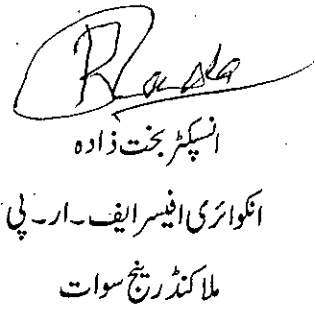 انسپکٹر بخت ذادہ
انکوائری افیسر ایف۔ار۔پی
ملاکنڈ رینج سوات